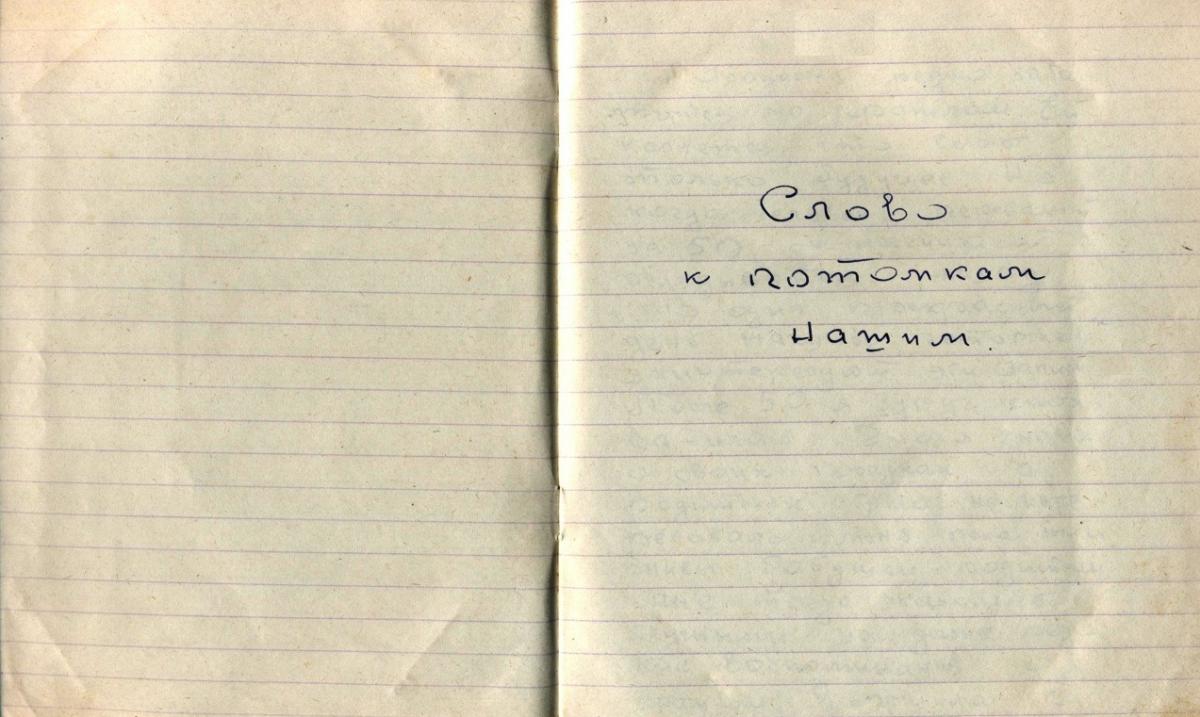 Слово
к потомкам
нашим.